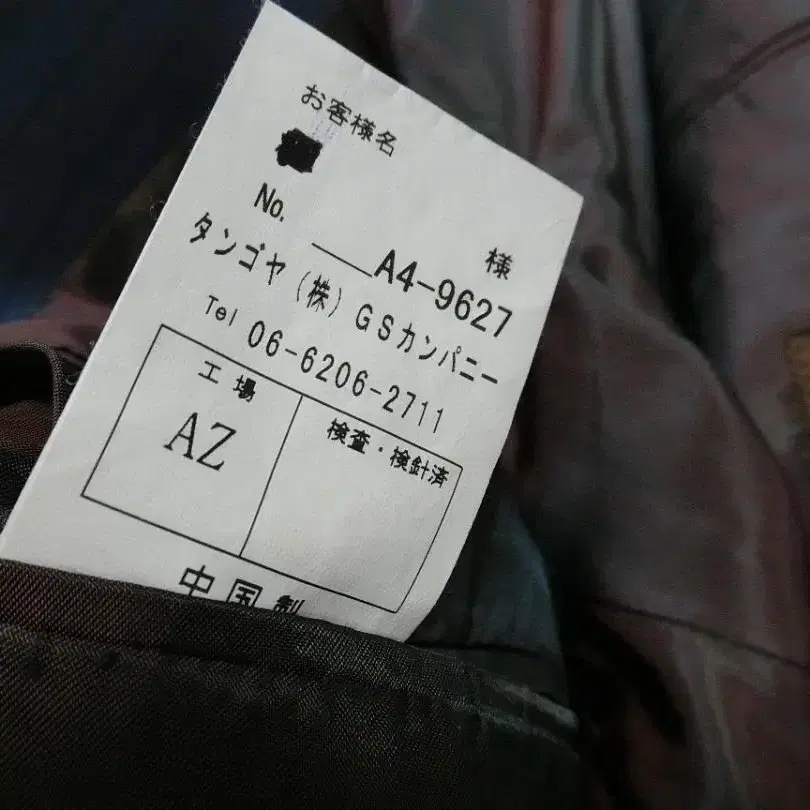 お客様名
様
No. A4-9627
タンゴヤ(株)GSカンパニー
Tel 06-6206-2711
工場
検査・検針済
AZ
中国製